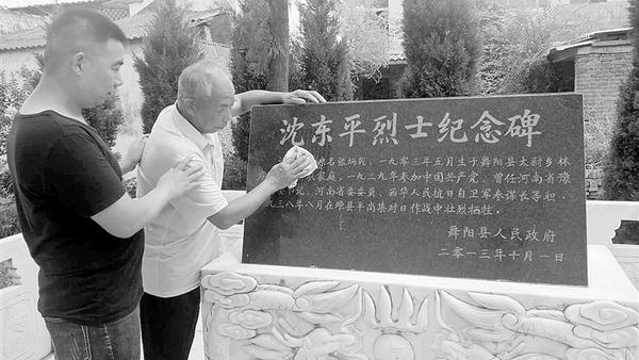 沈东平烈士纪念碑
原名张炳乾,一九〇三年五月生于舞阳县太尉乡林
农家庭,一九二九年参加中国共产党,曾任河南省豫
书记、河南省委委员、西华人民抗日自卫军参谋长等职,
一九三八年八月在睢县平岗集对日作战中壮烈牺牲。
舞阳县人民政府
二零一三年十月一日